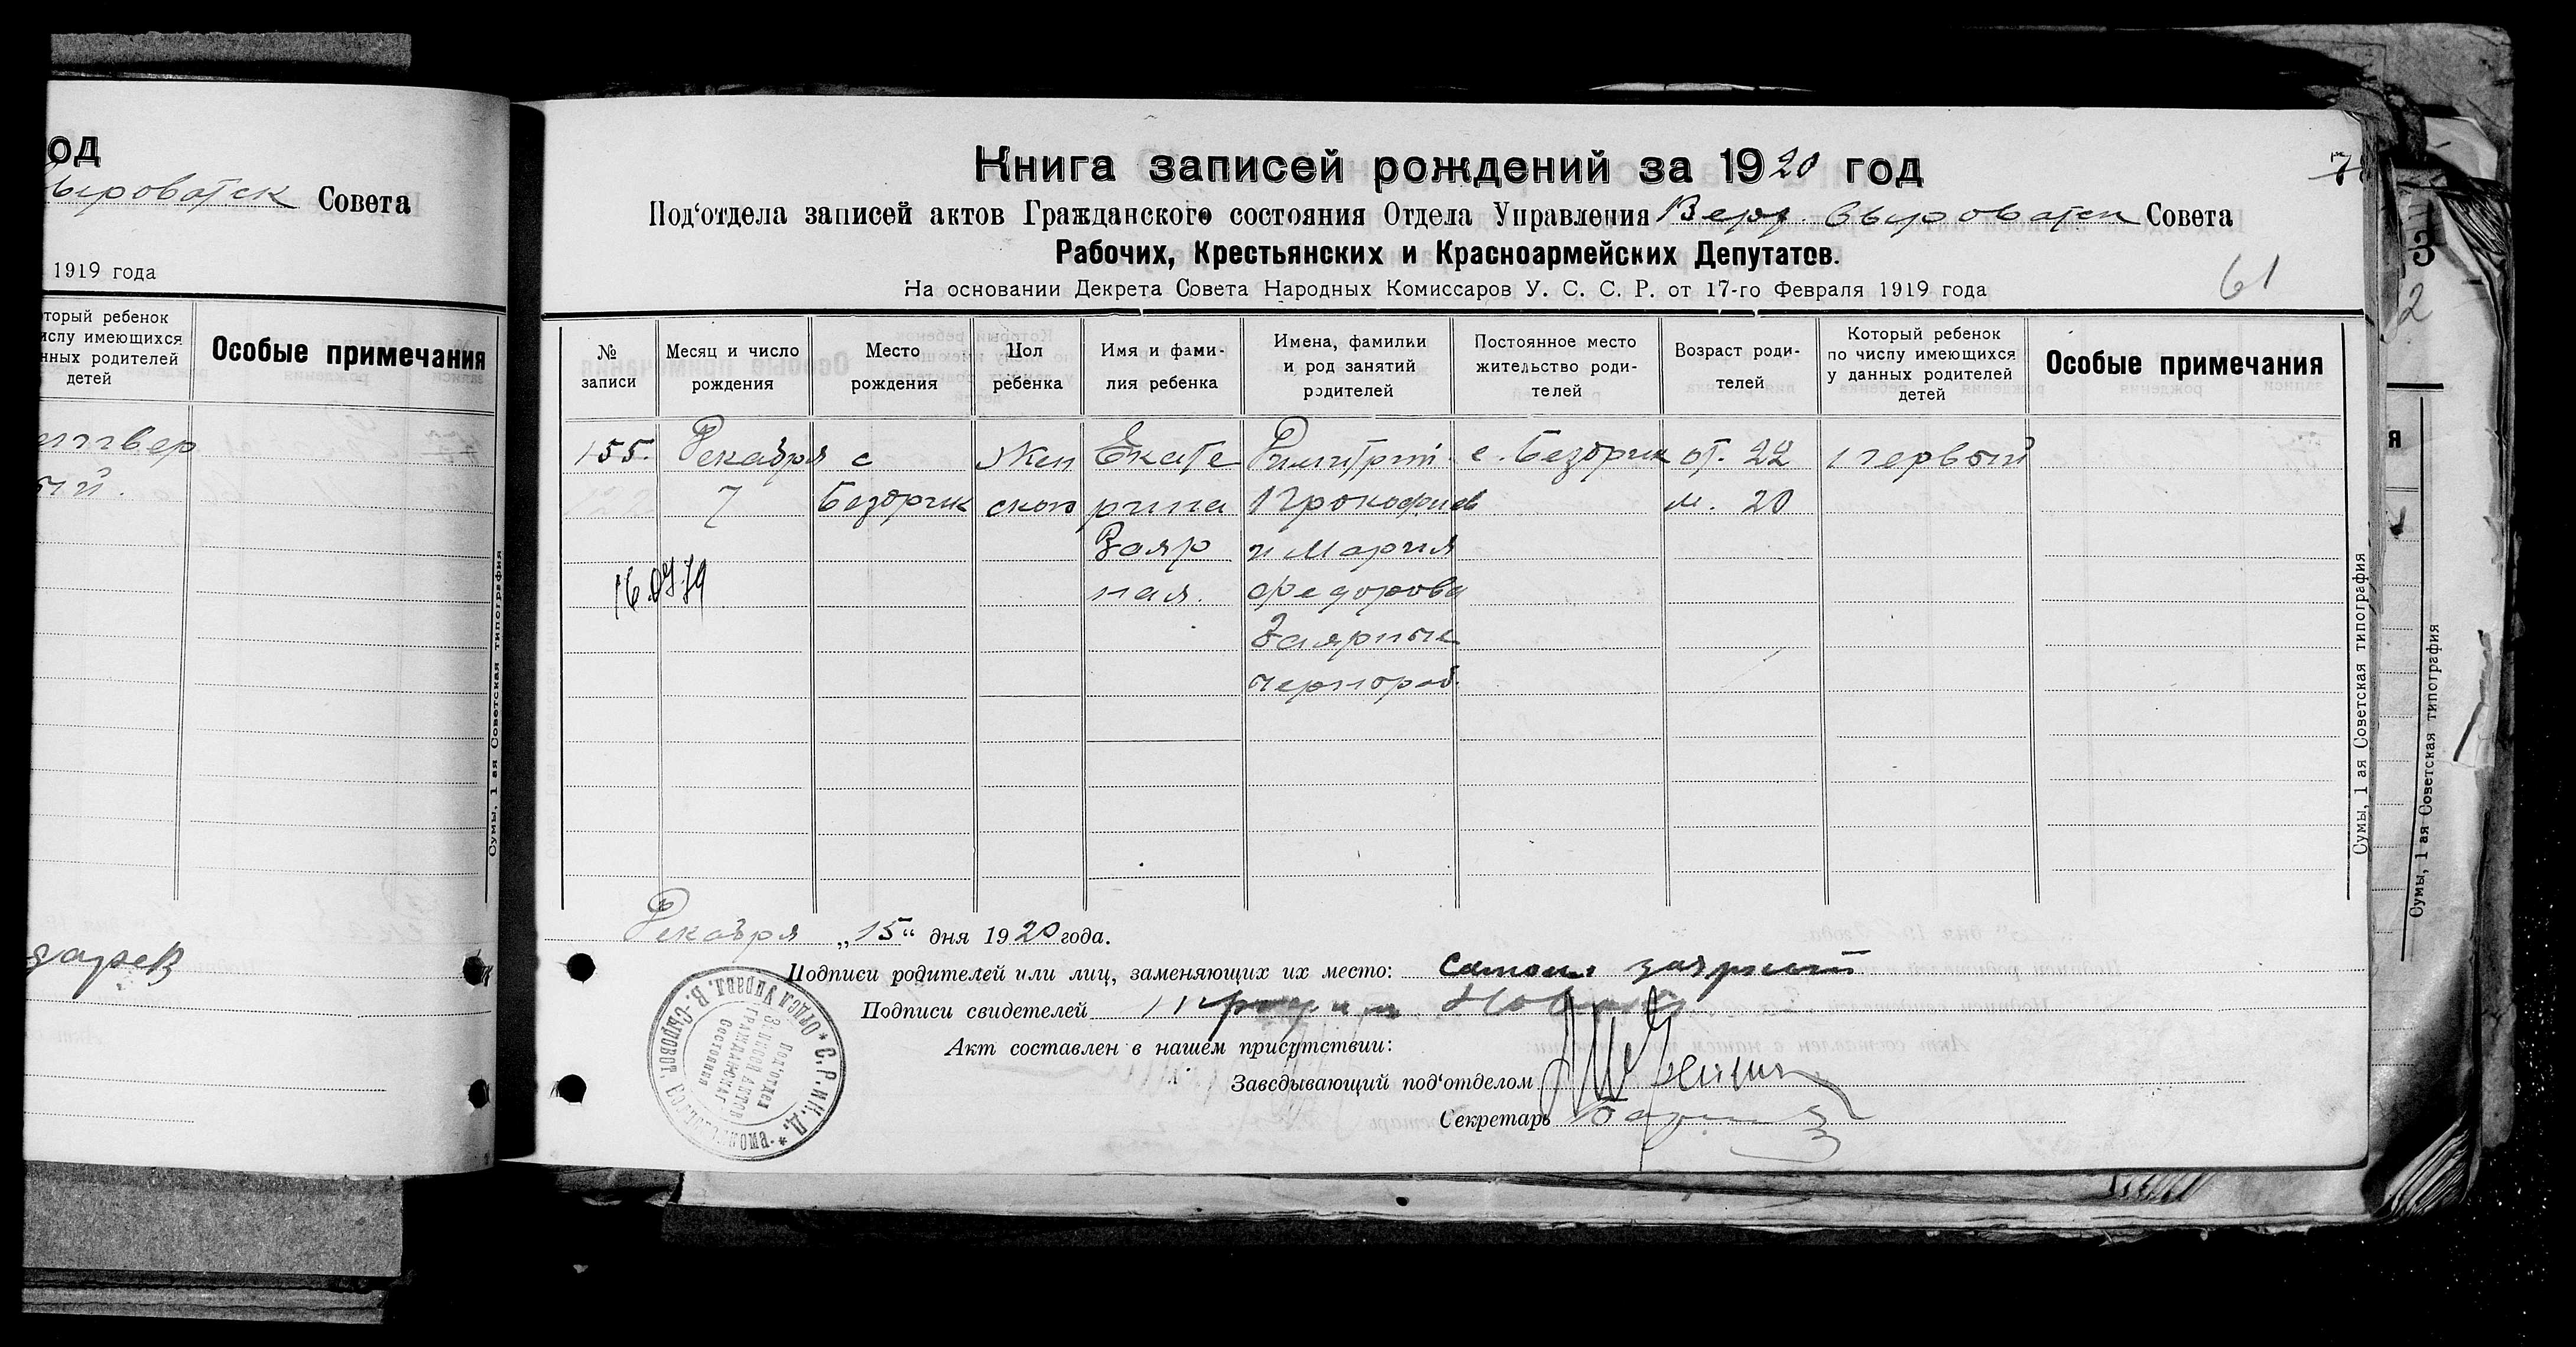 од
ыроватск Совета
1919 года
торый ребенок
ислу имеющихся
нных родителей
детей
Особые примечания
етвер
ый.
Сумы, 1 ая Советская типография
Книга записей рождений за 1920 год
Под'отдела записей актов Гражданского состояния Отдела Управления Верх. Сыроватск Совета
Рабочих, Крестьянских и Красноармейских Депутатов.
На основании Декрета Совета Народных Комиссаров У. С. С. Р. от 17-го Февраля 1919 года
61
№ записи
Месяц и число рождения
Место рождения
Пол ребенка
Имя и фами-
лия ребенка
Имена, фамилии
и род занятий
родителей
Постоянное место
жительство роди-
телей
Возраст роди-
телей
Который ребенок
по числу имеющихся
у данных родителей
детей
Особые примечания
155.
Декабря
7
с
Бездрик
Жен
ской
Екате
рина
Заяр
ная.
Димитрий
Прокофиев
и Мария
Федорова
Заярные
чернораб.
с. Бездрик
от. 22
м. 20
первый
16.07.79
Декабря „15“ дня 1920 года.
Подписи родителей или лиц, заменяющих их место: заярный
Подписи свидетелей
Акт составлен в нашем присутствии:
Заведывающий под'отделом
Секретарь
* С.Р.И К.Д. *
Отдел Управл. В.-Сыроват.
Под'отдел
Записей актов
Гражданског
Состояния
Сумы, 1 ая Советская типография
3
2
я
Сумы, 1 ая Советская типография